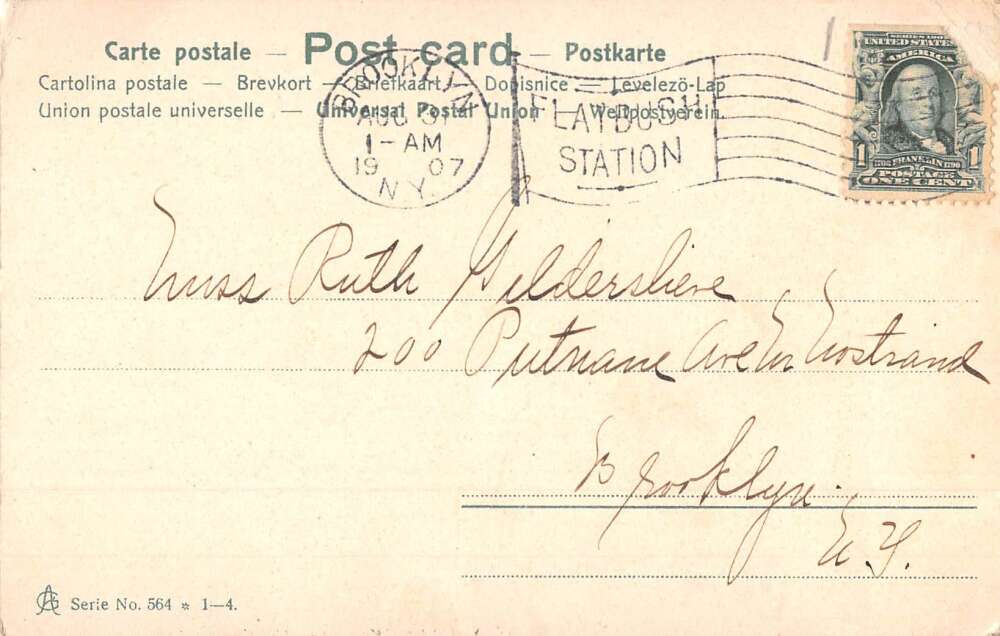 Carte postale — Post card — Postkarte
Cartolina postale — Brevkort — Briefkaart — Dopisnice — Levelező-Lap
Union postale universelle — Universal Postal Union — Weltpostverein.
BROOKLYN
AUG 3
1-AM
1907
N.Y.
FLATBUSH
STATION
SERIES 1902
UNITED STATES
AMERICA
1 1706 FRANKLIN 1790 1
POSTAGE
ONE CENT
Miss Ruth Gildersleeve
200 Putnam Ave Nr Nostrand
Brooklyn.
N.Y.
Serie No. 564 * 1—4.